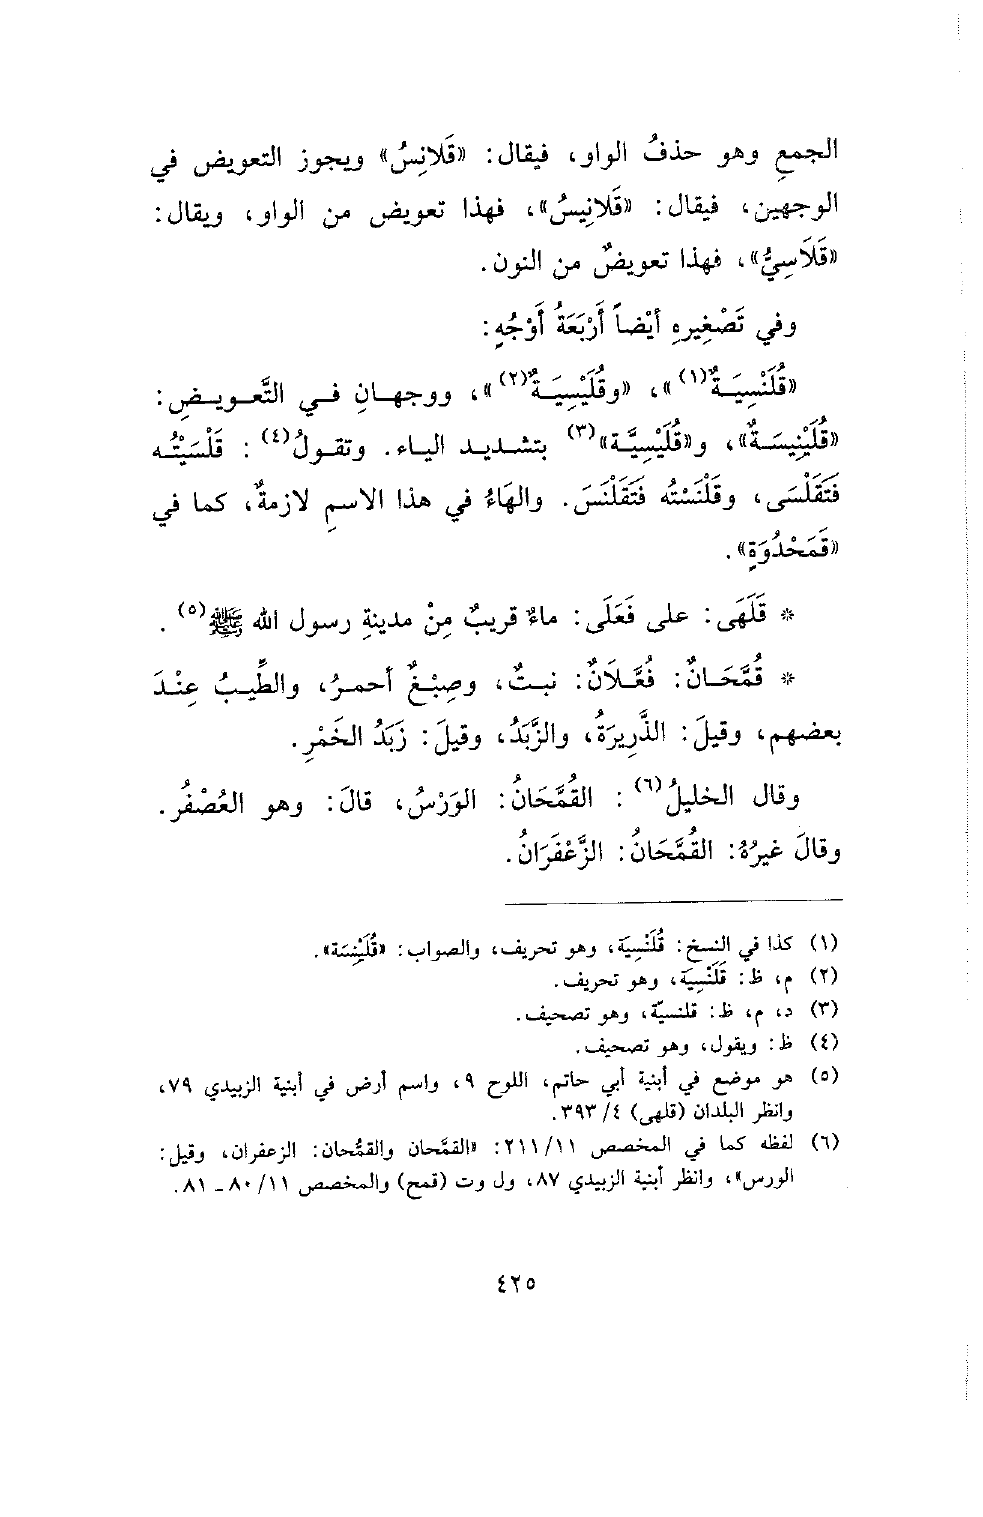 الجمعِ وهو حذفُ الواو، فيقال: «قَلانِسُ» ويجوز التعويض في
الوجهين، فيقال: «قَلانِيسُ»، فهذا تعويض من الواو، ويقال:
«قَلَاسِيُّ»، فهذا تعويضٌ من النون.
وفي تَصْغِيرِهِ أيْضاً أَرْبَعَةُ أَوْجُهٍ:
«قُلَنْسِيَةٌ(١)»، «وقُلَيْسِيَةٌ(٢)»، ووجهانِ في التَّعويضِ:
«قُلَيْنِيسَةٌ»، و«قُلَيْسِيَّة»(٣) بتشديد الياء. وتقولُ(٤): قَلْسَيْتُه
فَتَقَلْسَى، وقَلْنَسْتُه فَتَقَلْنَسَ. والهَاءُ في هذا الاسمِ لازمةٌ، كما في
«قَمَحْدُوَةٍ».
* قَلَهَى: على فَعَلَى: ماءٌ قريبٌ مِنْ مدينةِ رسول الله ﷺ(٥).
* قُمَّحَانٌ: فُعَّلَانٌ: نبتٌ، وصِبْغٌ أحمرُ، والطِّيبُ عِنْدَ
بعضهم، وقيلَ: الذَّرِيرَةُ، والزَّبَدُ، وقيلَ: زَبَدُ الخَمْرِ.
وقال الخليلُ(٦): القُمَّحَانُ: الوَرْسُ، قالَ: وهو العُصْفُر.
وقالَ غيرُهُ: القُمَّحَانُ: الزَّعْفَرَانُ.
(١) كذا في النسخ: قُلَنْسِيَة، وهو تحريف، والصواب: «قُلَيْنِسَة».
(٢) م، ظ: قَلَنْسِيَة، وهو تحريف.
(٣) د، م، ظ: قلنسيّة، وهو تصحيف.
(٤) ظ: ويقول، وهو تصحيف.
(٥) هو موضع في أبنية أبي حاتم، اللوح ٩، واسم أرض في أبنية الزبيدي ٧٩،
وانظر البلدان (قلهى) ٤/ ٣٩٣.
(٦) لفظه كما في المخصص ١١/ ٢١١: «القمَّحان والقمُّحان: الزعفران، وقيل:
الورس»، وانظر أبنية الزبيدي ٨٧، ول وت (قمح) والمخصص ١١/ ٨٠ ـ ٨١.
٤٢٥